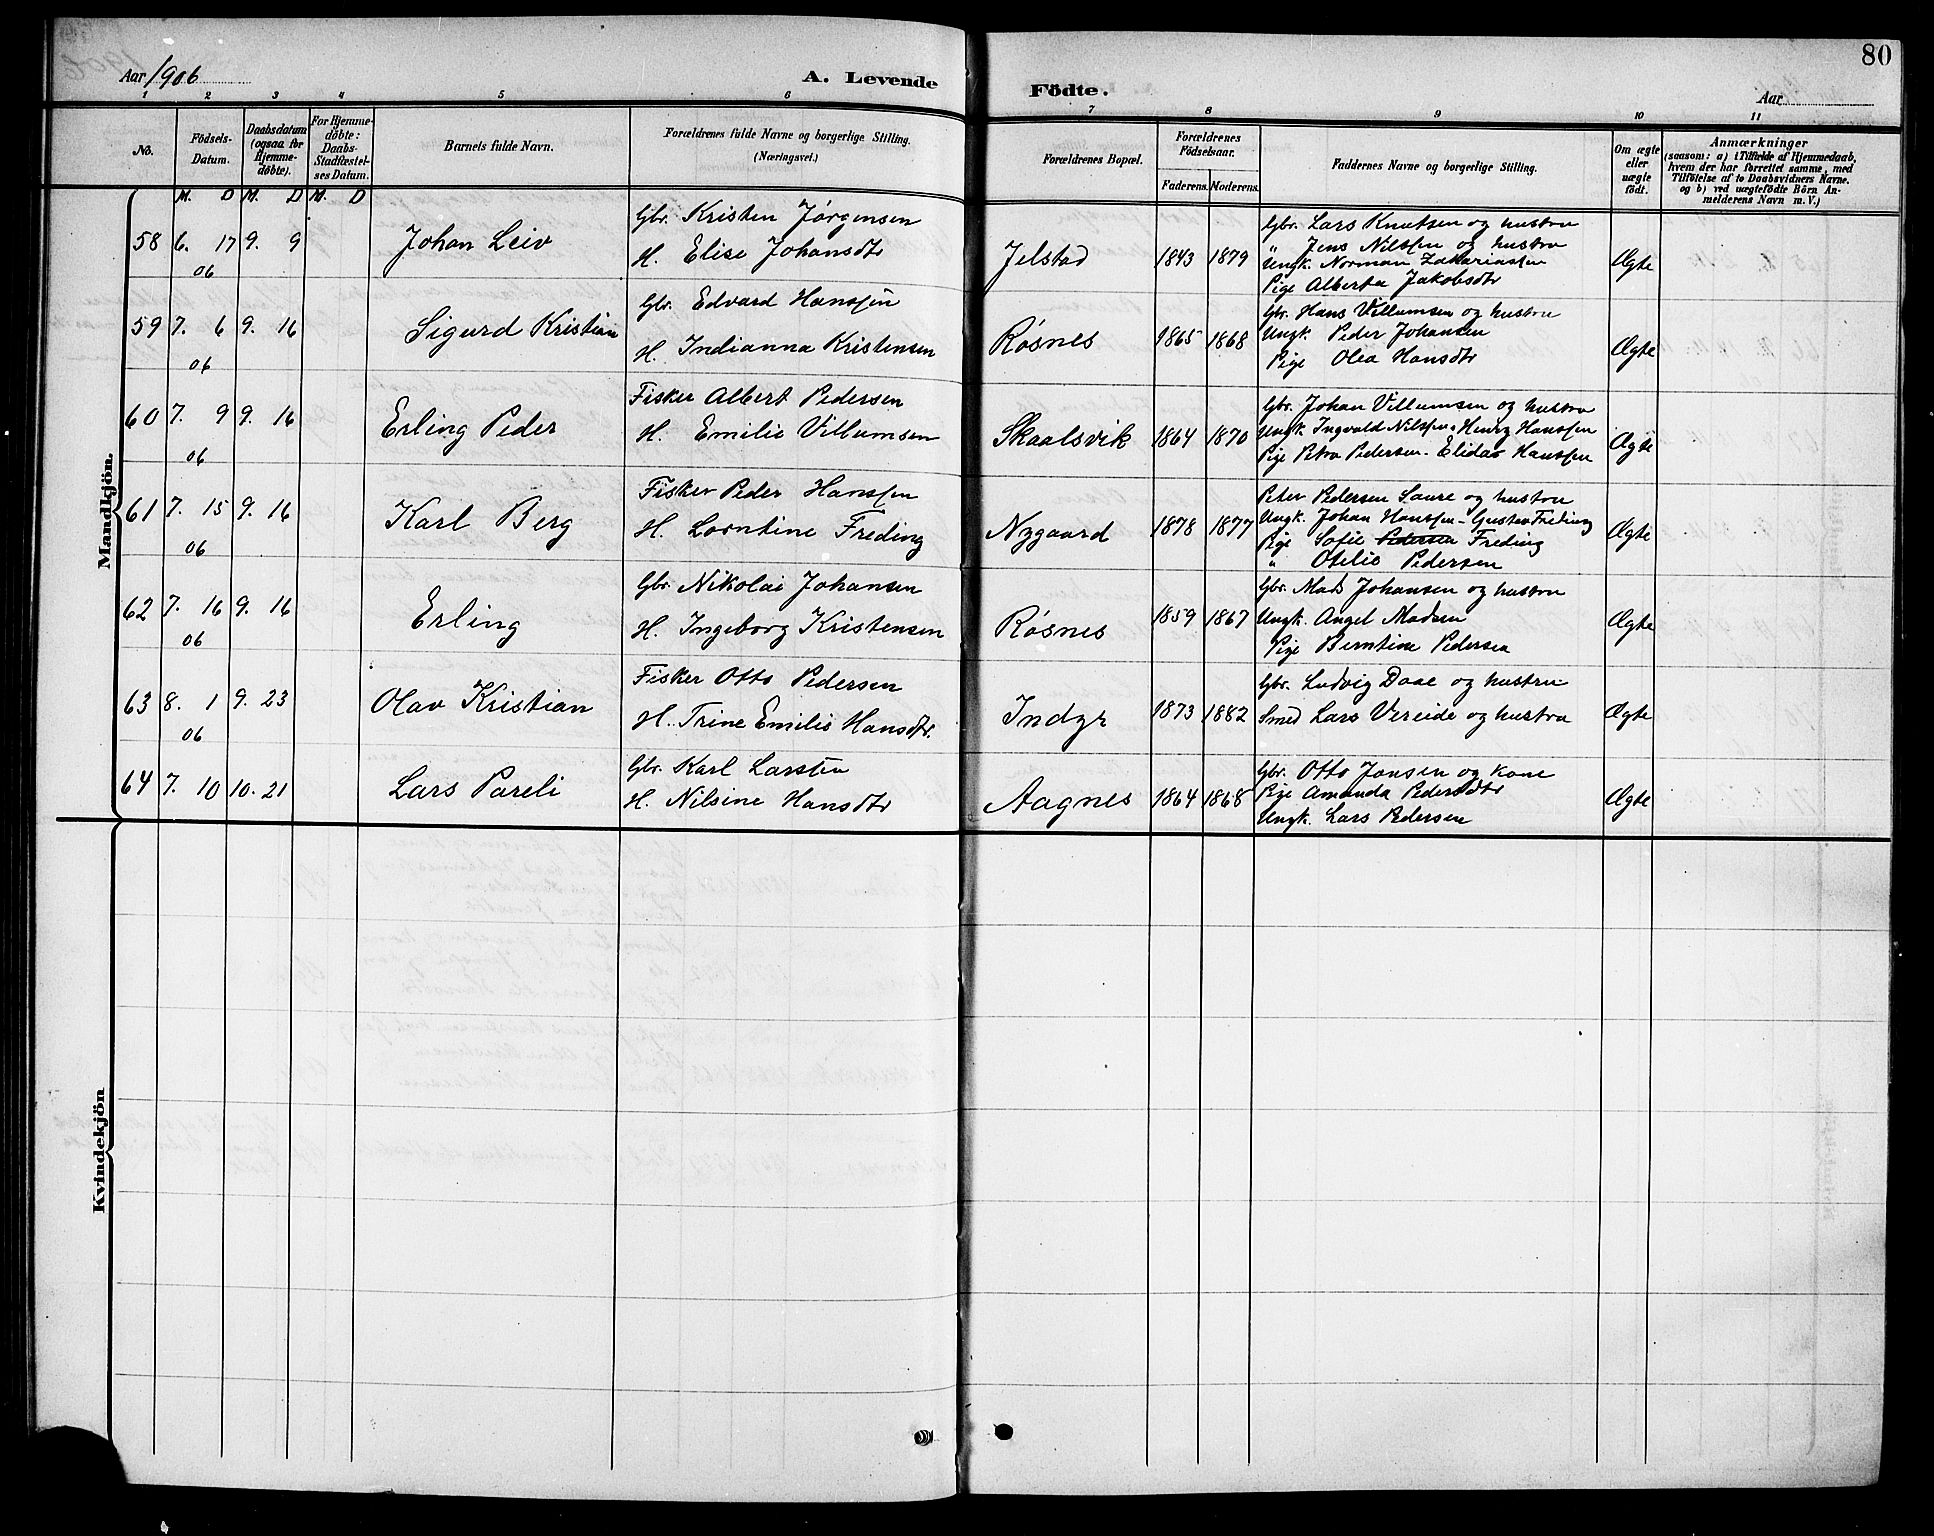 80
Aar 1906
A. Levende
Födte.
Aar
1 2 3 4 5 6 7 8 9 10 11
No.
Födsels-Datum.
Daabsdatum (ogsaa for Hjemme-döbte).
For Hjemme-döbte: Daabs-Stadfæstel-ses Datum.
Barnets fulde Navn.
Forældrenes fulde Navne og borgerlige Stilling.
(Næringsvei.)
Forældrenes Bopæl.
Forældrenes Födselsaar.
Faderens. Moderens.
Faddernes Navne og borgerlige Stilling.
Om ægte eller uægte födt.
Anmærkninger
(saasom: a) i Tilfælde af Hjemmedaab,
hvem der har forrettet samme, med
Tilföielse af to Daabsvidners Navne.
og b) ved uægtefödte Börn An-
melderens Navn m. V.)
M. D M. D M. D
Mandkjön.
58 6. 17 9. 9
06
Johan Leiv
Gbr. Kristen Jørgensen
H. Elise Johansdtr
Jelstad
1843 1879
Gbr. Lars Knutsen og hustru
" Jens Nilssen og hustru
Ungk. Norman Zakariassen
Pige Alberta Jakobsdtr
Ægte
59 7. 6 9. 16
06
Sigurd Kristian
Gbr. Edvard Hanssen
H. Indianna Kristensen
Røsnes
1865 1868
Gbr. Hans Villumsen og hustru
Ungk. Peder Johansen
Pige Olea Hansdtr
Ægte
60 7. 9 9. 16
06
Erling Peder
Fisker Albert Pedersen
H. Emilie Villumsen
Skaalsvik
1864 1870
Gbr. Johan Villumsen og hustru
Ungk. Ingvald Nilssen. Henry Hanssen
Pige Petra Pedersen - Elida Hanssen
Ægte
61 7. 15 9. 16
06
Karl Berg
Fisker Peder Hanssen
H. Lorntine Freding
Nygaard
1878 1877
Peter Pedersen Saure og hustru
Ungk. Johan Hanssen - Gustav Freding
Pige Sofie Pedersen Freding
" Otelie Pedersen
Ægte
62 7. 16 9. 16
06
Erling
Gbr. Nikolai Johansen
H. Ingeborg Kristensen
Røsnes
1859 1867
Gbr. Mads Johansen og hustru
Ungk. Angel Madsen
Pige Berntine Pedersen
Ægte
63 8. 1 9. 23
06
Olav Kristian
Fisker Otto Pedersen
H. Trine Emilie Hansdtr.
Indyr
1873 1882
Gbr. Ludvig Daae og hustru
Smed Lars Vereide og hustru
Ægte
64 7. 10 10. 21
Lars Pareli
Gbr. Karl Larsen
H. Nilsine Hansdtr
Aagnes
1864 1868
Gbr. Otto Jansen og Kone
Pige Amanda Pedersdtr
Ungk. Lars Pedersen
Ægte
Kvindekjön